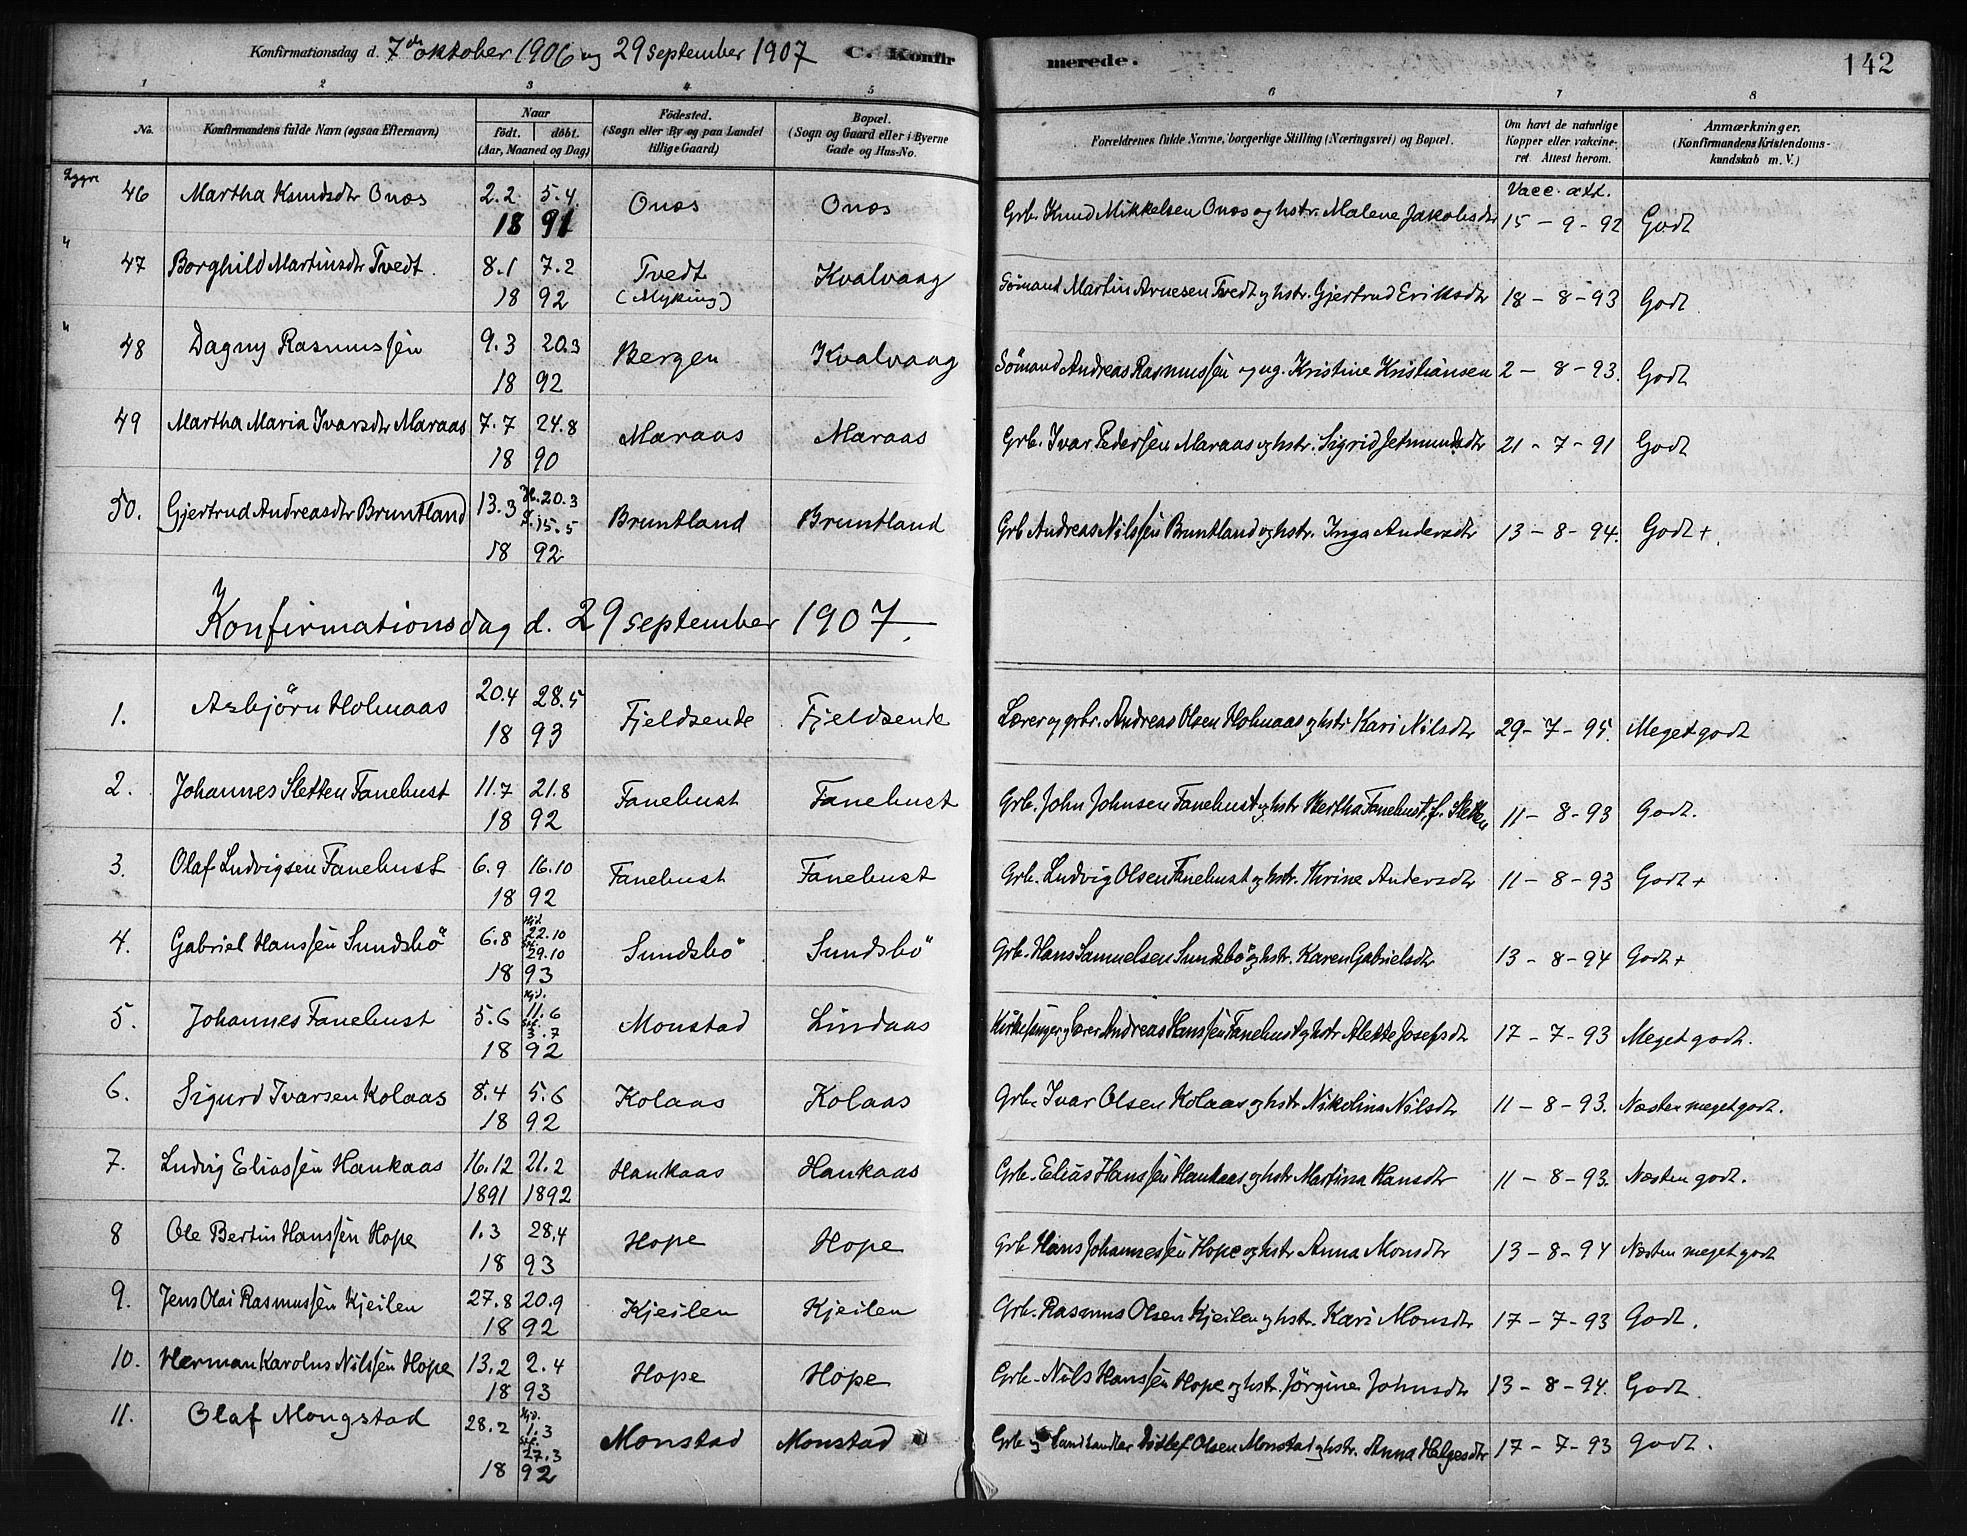 Konfirmationsdag d. 7de oktober 1906 og 29 september 1907 C. Konfir merede. 142
1 2 3 4 5 6 7 8
No. Konfirmandens fulde Navn (ogsaa Efternavn) Naar födt. döbt. (Aar, Maaned og Dag) Födested. (Sogn eller By og paa Landet tillige Gaard) Bopæl. (Sogn og Gaard eller i Byerne Gade og Hus-No. Forældrenes fulde Navne, borgerlige Stilling (Næringsvei) og Bopæl. Om havt de naturlige Kopper eller vakcineret. Attest herom. Anmærkninger. (Konfirmandens Kristendomskundskab m. V.)
46 Martha Knudsdtr Onos 2.2. 5.4. 1891 Onos Onos Grb. Knud Mikkelsen Onos og hstr. Malene Jakobsdtr Vacc. att. 15-9-92 Godt
" 47 Borghild Martinsdtr Tvedt. 8.1 7.2 1892 Tvedt (Myking) Kvalvaag Sömand Martin Arnesen Tvedt og hstr. Gjertrud Eriksdtr 18-8-93 Godt
" 48 Dagny Rasmussen 9.3 20.3 1892 Bergen Kvalvaag Sömand Andreas Rasmussen og ug. Kristine Kristiansen 2-8-93. Godt
49 Martha Maria Ivarsdtr Maraas 7.7 24.8 1890 Maraas Maraas Grb. Ivar Pedersen Maraas og hstr. Sigrid Jetmundsdtr 21-7-91 Godt
50. Gjertrud Andreasdtr Bruntland 13.3 20.3 15.5 1892 Bruntland Bruntland Grb. Andreas Nilssen Bruntland og hstr. Inga Andersdtr 13-8-94. Godt +.
Konfirmationsdag d. 29 september 1907.
1. Asbjörn Holmaas 20.4 28.5 1893 Fjeldsende Fjeldsende Lærer og grbr. Andreas Olsen Holmaas og hstr Kari Nilsdtr 29-7-95. Meget godt
2. Johannes Sletten Fanebust 11.7 21.8 1892 Fanebust Fanebust Grb. John Johnsen Fanebust og hstr Hertha Fanebust, f. Sletten 11-8-93 Godt.
3. Olaf Ludvigsen Fanebust 6.9 16.10 1892 Fanebust Fanebust Grb. Ludvig Olsen Fanebust og hstr. Thrine Andersdtr 11-8-93 Godt +
4. Gabriel Hanssen Sundsbö 6.8 Hjd. 22.10 29.10 1893 Sundsbö Sundsbö Grb. Hans Samuelsen Sundsbö og hstr. Karen Gabrielsdtr 13-8-94 Godt +
5. Johannes Fanebust 5.6 Hjd. 11.6 3.7 1892 Monstad Lindaas Kirkesanger og lærer Andreas Hanssen Fanebust og hstr Alette Josefsdtr 17-7-93 Meget godt.
6. Sigurd Ivarsen Kolaas 8.4 5.6 1892 Kolaas Kolaas Grb. Ivar Olsen Kolaas og hstr Nikolina Nilsdtr 11-8-93. Næsten meget godt.
7. Ludvig Eliassen Haukaas 16.12 1891 21.2 1892 Haukaas Haukaas Grb. Elias Hanssen Haukaas og hstr Martina Hansdtr 11-8-93. Næsten godt.
8 Ole Bertin Hanssen Hope 1.3 28.4 1893 Hope Hope Grb Hans Johannessen Hope og hstr Anna Monsdtr 13-8-94 Næsten meget godt
9. Jens Olai Rasmussen Kjeilen 27.8 20.9 1892 Kjeilen Kjeilen Grb. Rasmus Olsen Kjeilen og hstr. Kari Monsdtr 17-7-93 Godt.
10. Herman Karolus Nilssen Hope 13.2 2.4 1893 Hope Hope Grb. Nils Hanssen Hope og hstr Jörgine Johnsdtr 13-8-94. Godt.
11. Olaf Mongstad 28.2 Hjd. 1.3 27.3 1892 Monstad Monstad Grb og Landhandler Ditlef Olsen Monstad og hstr. Anna Helgesdtr 17-7-93 Godt.